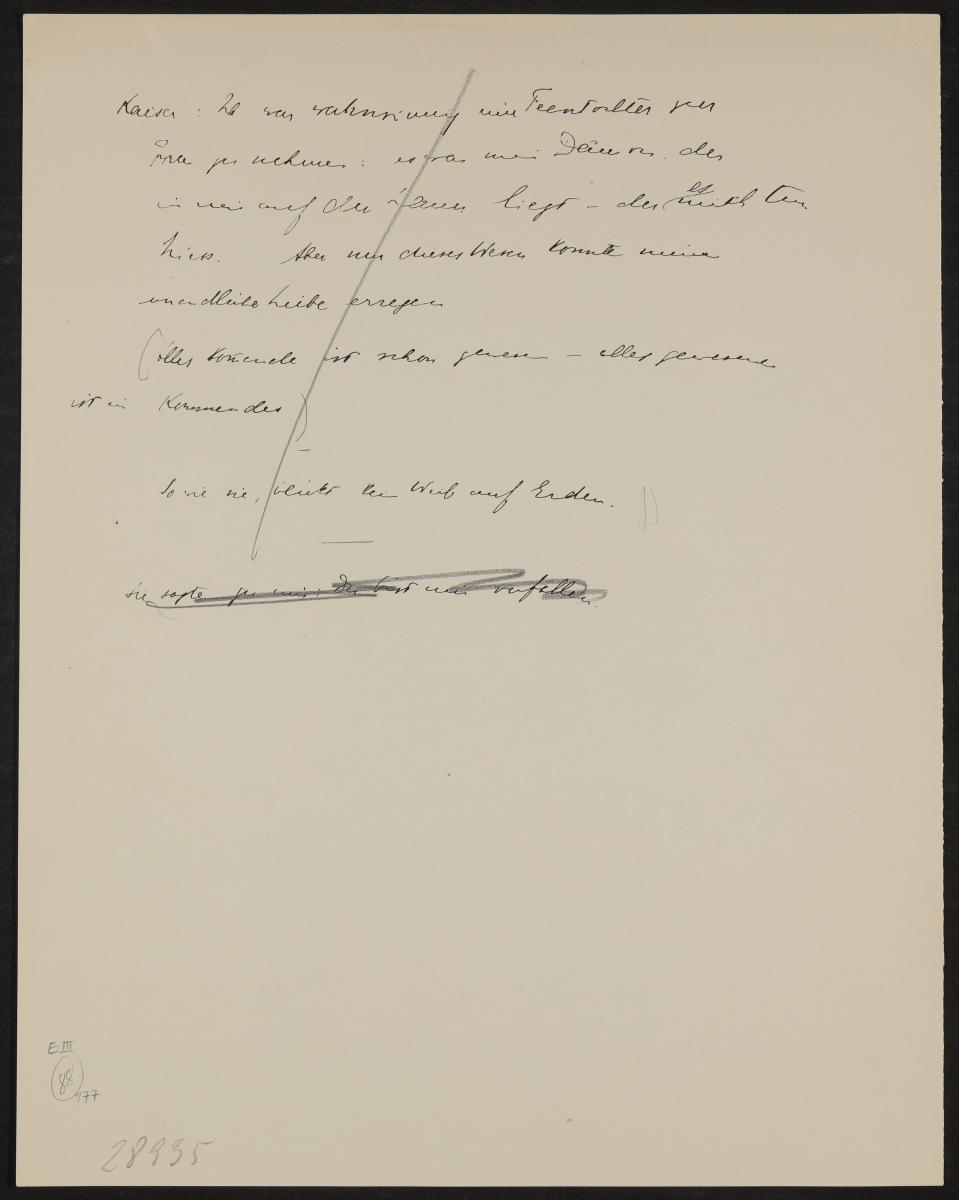 Kaiser: Ich war wahnsinnig eine Feentochter zur
Frau zu nehmen: es war mein Dämon. der
in mir auf der Lauer liegt – der es mich tun
hiess. Aber nur dieses Wesen konnte meine
unendliche Liebe erregen
(Alles Komende ist schon gewesen – alles gewesene
ist ein Kommendes)
–
So wie sie, blickt kein Weib auf Erden.
sie sagte zu mir: Du bist mir verfallen.
E III
88
177
28935